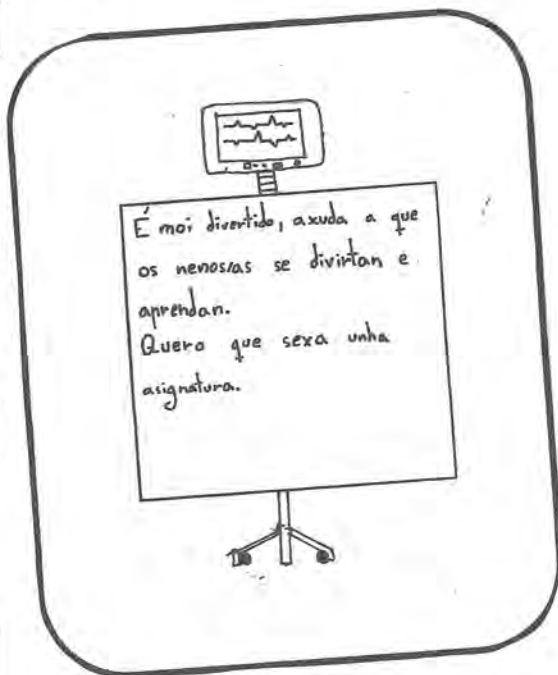 É moi divertido, axuda a que
os nenos/as se divirtan e
aprendan.
Quero que sexa unha
asignatura.